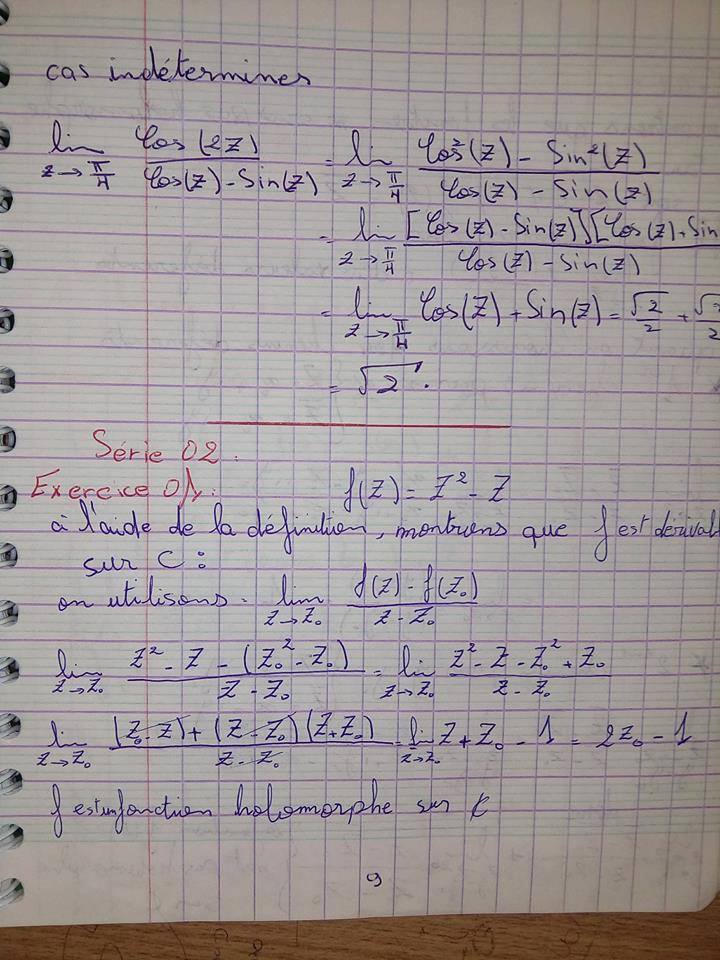 cas indétermines
lim z→π/4 Cos(2Z) / Cos(Z) - Sin(Z) = lim z→π/4 Cos²(Z) - Sin²(Z) / Cos(Z) - Sin(Z)
= lim z→π/4 [Cos(Z) - Sin(Z)][Cos(Z) + Sin / Cos(Z) - Sin(Z)
= lim z→π/4 Cos(Z) + Sin(Z) = √2/2 + √2/2
= √2.
Série 02.
Exercice 01. f(Z) = Z² - Z
à l'aide de la définition, montrons que f est dérivabl
sur C :
on utilisons. lim Z→Z₀ f(Z) - f(Z₀) / Z - Z₀
lim Z→Z₀ Z² - Z - (Z₀² - Z₀) / Z - Z₀ = lim Z→Z₀ Z² - Z - Z₀² + Z₀ / Z - Z₀
lim Z→Z₀ (Z₀ - Z) + (Z - Z₀)(Z + Z₀) / Z - Z₀ = lim Z→Z₀ Z + Z₀ - 1 = 2Z₀ - 1
f est un fonction holomorphe sur C
9